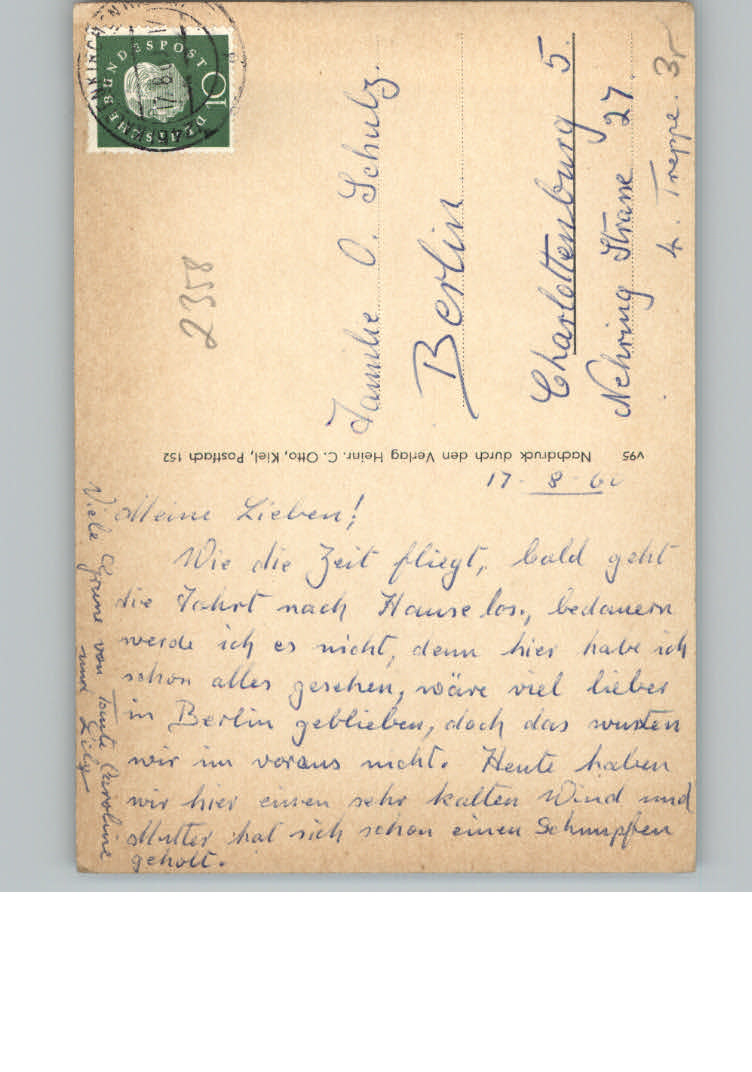 DEUTSCHE BUNDESPOST
10
2358
Familie O. Schulz.
Berlin
Charlottenburg 5.
Nehring Strasse 27.
4. Treppe. 3r
v95 Nachdruck durch den Verlag Heinr. C. Otto, Kiel, Postfach 152
17-8-60
Meine Lieben!
Wie die Zeit fliegt, bald geht
die Fahrt nach Hause los, bedauern
werde ich es nicht, denn hier habe ich
schon alles gesehen, wäre viel lieber
in Berlin geblieben, doch das wusten
wir im voraus nicht. Heute haben
wir hier einen sehr kalten Wind und
Mutter hat sich schon einen Schnupfen
geholt.
Viele Grüsse von Tante Caroline
und Lily